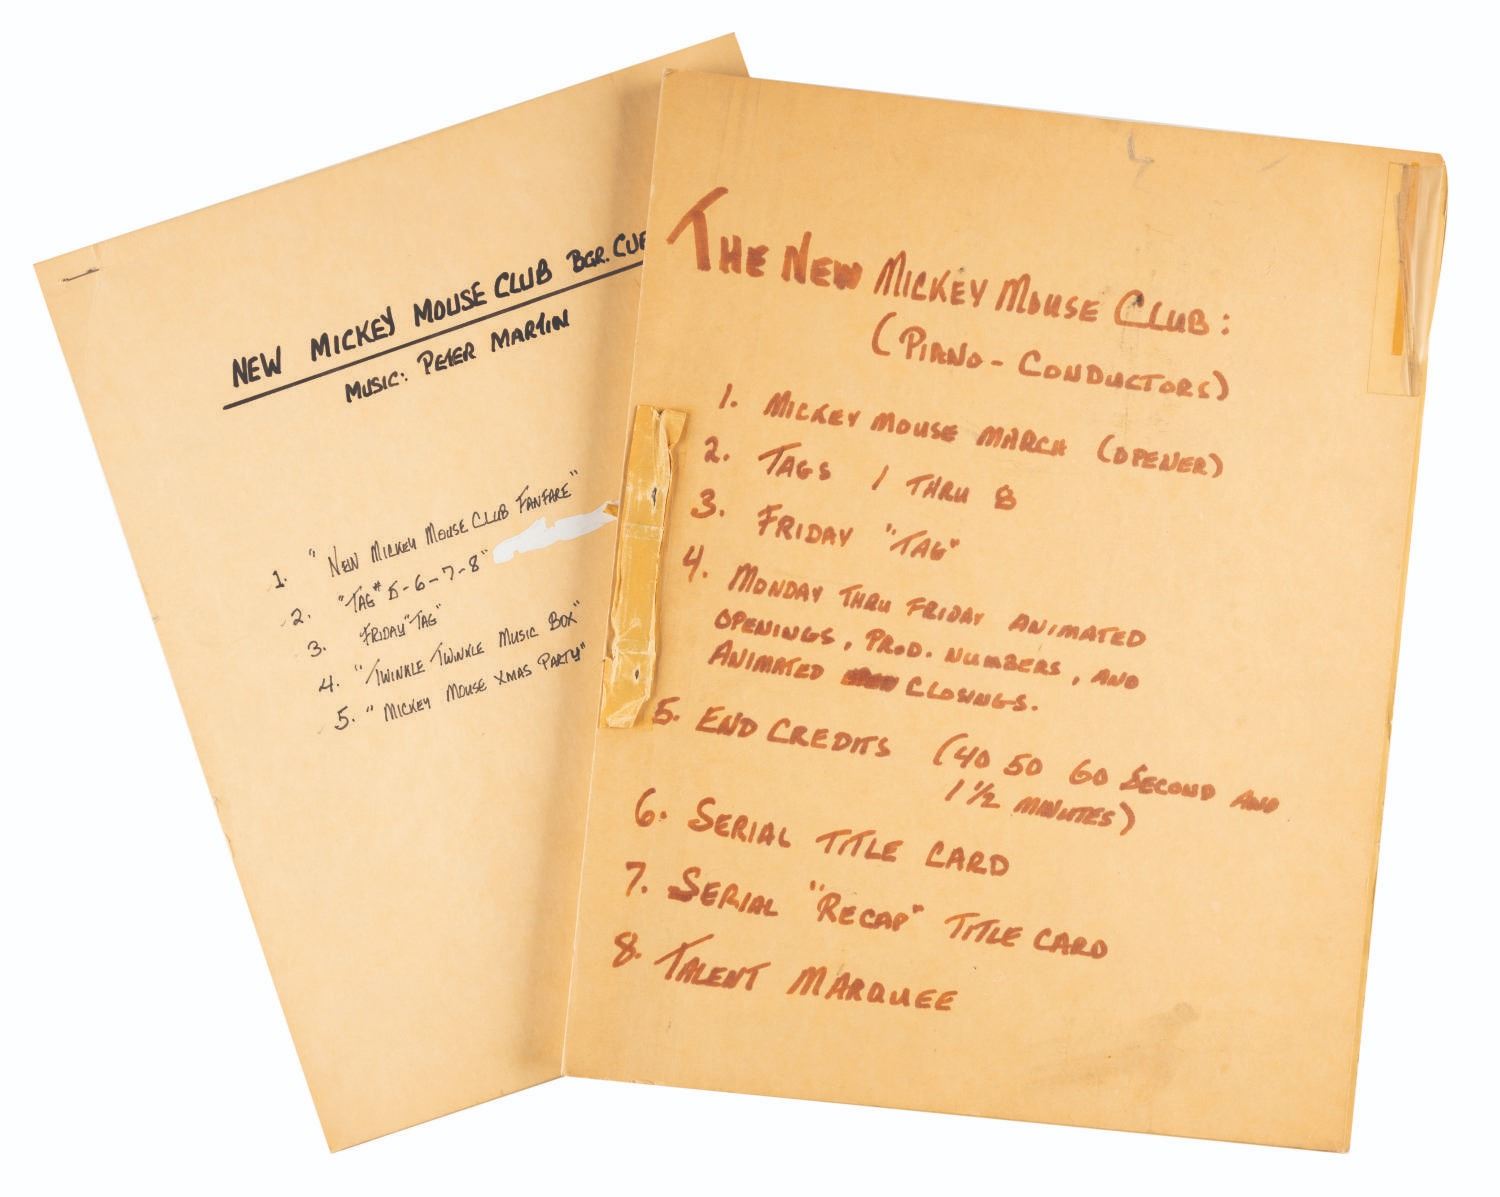 NEW MICKEY MOUSE CLUB BGR. CUE
MUSIC: PETER MARTIN
1. "NEW MICKEY MOUSE CLUB FANFARE"
2. "TAG" 5-6-7-8"
3. FRIDAY "TAG"
4. "TWINKLE TWINKLE MUSIC BOX"
5. "MICKEY MOUSE XMAS PARTY"
THE NEW MICKEY MOUSE CLUB:
(PIANO - CONDUCTORS)
1. MICKEY MOUSE MARCH (OPENER)
2. TAGS 1 THRU 8
3. FRIDAY "TAG"
4. MONDAY THRU FRIDAY ANIMATED
OPENINGS, PROD. NUMBERS, AND
ANIMATED CLOSINGS.
5. END CREDITS (40 50 60 SECOND AND
1 1/2 MINUTES)
6. SERIAL TITLE CARD
7. SERIAL "RECAP" TITLE CARD
8. TALENT MARQUEE